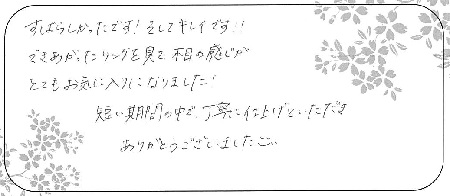 すばらしかったです！そしてキレイです！！
できあがったリングを見て、木目の感じが
とてもお気に入りになりました！
短い期間の中で、丁寧に仕上げていただき
ありがとうございました